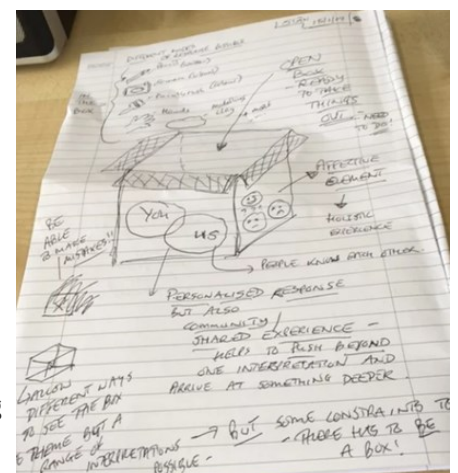 DIFFERENT MODES
OF RESPONSE POSSIBLE
OPEN
BOX
- READY
TO TAKE
THINGS
OUT - "NEED
TO DO!
- Hands
modelling
clay
IN
THE
BOX
AFFECTIVE
ELEMENT
HOLISTIC
EXPERIENCE
You
US
BE
ABLE
2 MAKE
MISTAKES!!
PEOPLE KNOW EACH OTHER.
PERSONALISED RESPONSE
BUT ALSO
COMMUNITY /
SHARED EXPERIENCE -
HELPS TO PUSH BEYOND
ONE INTERPRETATION AND
ARRIVE AT SOMETHING DEEPER
DIFFERENT WAYS
TO SEE THE BOX
THEME BUT A
RANGE OF
INTERPRETATIONS
POSSIBLE -
→ BUT SOME CONSTRAINTS TO
- THERE HAS TO BE
A BOX!